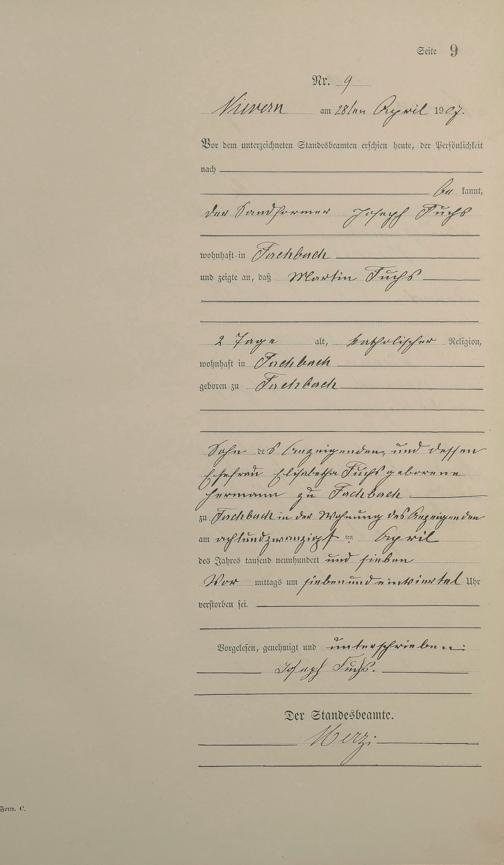 Seite 9
Nr. 9
Nievern am 28ten April 1907.
Vor dem unterzeichneten Standesbeamten erschien heute, der Persönlichkeit
nach
be kannt,
der Sandformer Joseph Fuchs
wohnhaft in Fachbach
und zeigte an, daß Martin Fuchs
2 Tage alt, katholischer Religion,
wohnhaft in Fachbach
geboren zu Fachbach
Sohn des Anzeigenden, und dessen
Ehefrau Elisabetha Fuchs geborene
Hermann zu Fachbach
zu Fachbach in der Wohnung des Anzeigenden
am achtundzwanzigsten April
des Jahres tausend neunhundert und sieben
Vor mittags um sieben und einviertel Uhr
verstorben sei.
Vorgelesen, genehmigt und unterschrieben:
Joseph Fuchs.
Der Standesbeamte.
Form. C.